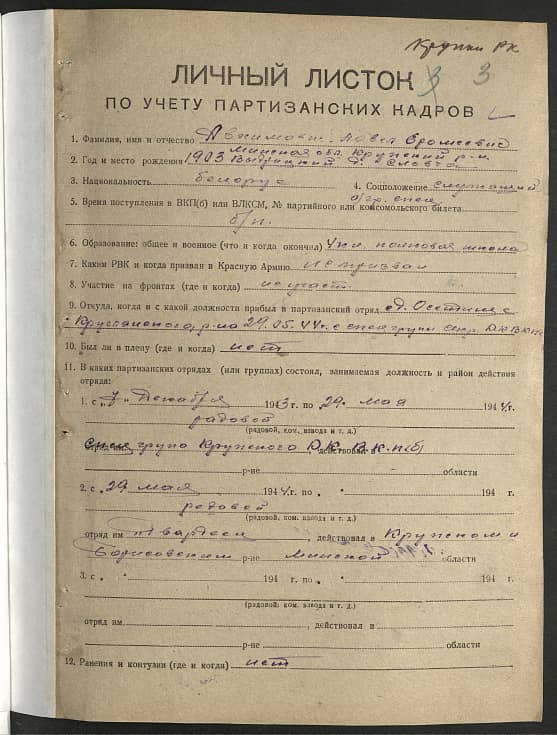 Крупки РК
ЛИЧНЫЙ ЛИСТОК 3
ПО УЧЕТУ ПАРТИЗАНСКИХ КАДРОВ
1. Фамилия, имя и отчество Павел
Минская обл. Крупский р-н
2. Год и место рождения 1903 д.
3. Национальность белорус 4. Соцположение служащий
5. Время поступления в ВКП(б) или ВЛКСМ, № партийного или комсомольского билета
б/п.
6. Образование: общее и военное (что и когда окончил) школа
7. Каким РВК и когда призван в Красную Армию не призван
8. Участие на фронтах (где и когда) не участ.
9. Откуда, когда и с какой должности прибыл в партизанский отряд д. с
р-на 29.05.44 г. с спец групы
10. Был ли в плену (где и когда) нет
11. В каких партизанских отрядах (или группах) состоял, занимаемая должность и район действия
отряда:
1. с „ Декабря 1943 г. по „29 мая 1944 г.
рядовой
(рядовой, ком. взвода и т. д.)
група Крупского Р.К. В.К.П(б)
р-не области
2. с „29 мая 1944 г. по „ “ 194 г.
рядовой
(рядовой, ком. взвода и т. д.)
отряд им Гвардеец действовал в Крупском и
Борисовским р-не Минской области
3. с „ “ 194 г. по „ “ 194 г.
(рядовой, ком. взвода и т. д.)
отряд им. , действовал в
р-не области
12. Ранения и контузии (где и когда) нет